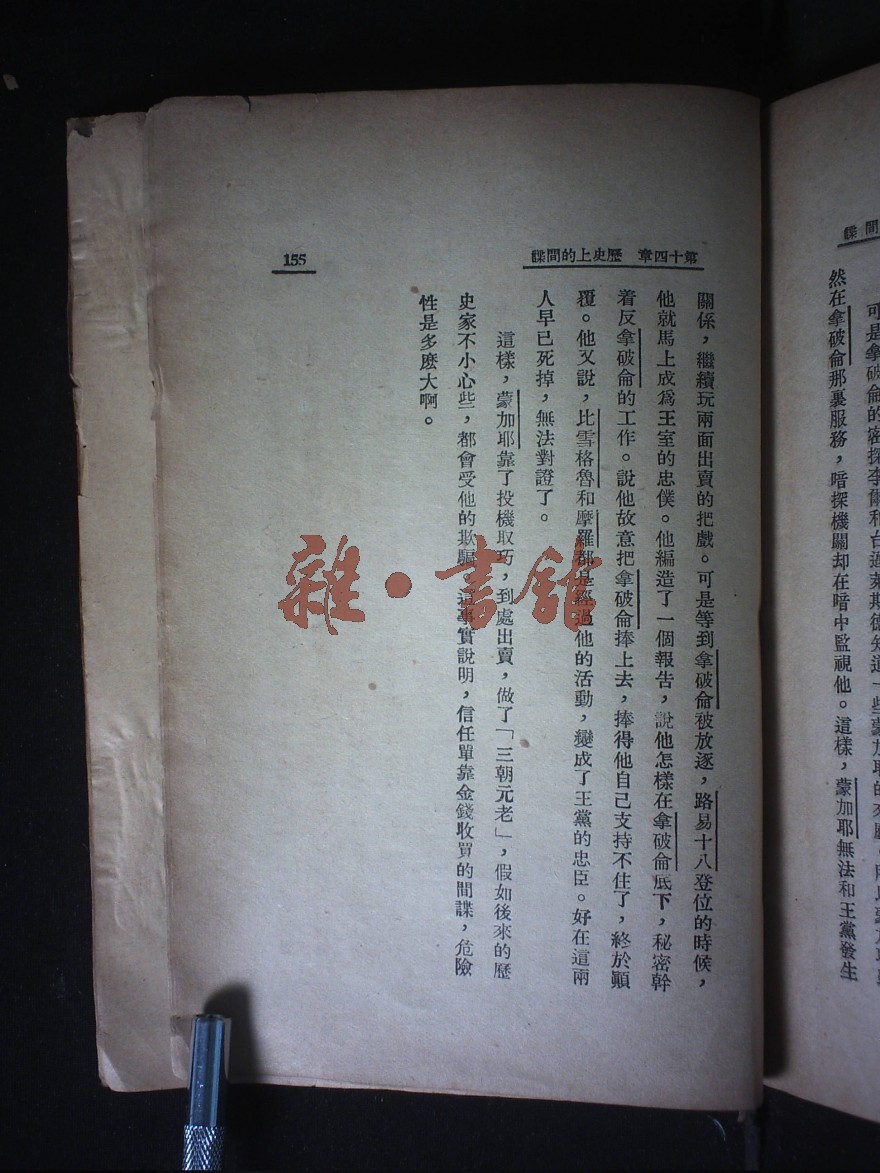 可是拿破侖的密探李爾和台
然在拿破侖那裏服務，暗探機關却在暗中監視他。這樣，蒙加耶無法和王黨發生
第十四章　歷史上的間諜
155
關係，繼續玩兩面出賣的把戲。可是等到拿破侖被放逐，路易十八登位的時候，
他就馬上成爲王室的忠僕。他編造了一個報告，說他怎樣在拿破侖底下，秘密幹
着反拿破侖的工作。說他故意把拿破侖捧上去，捧得他自己支持不住了，終於顚
覆。他又說，比雪格魯和摩羅都是經過他的活動，變成了王黨的忠臣。好在這兩
人早已死掉，無法對證了。
這樣，蒙加耶靠了投機取巧，到處出賣，做了「三朝元老」，假如後來的歷
史家不小心些，都會受他的欺騙。這事實說明，信任單靠金錢收買的間諜，危險
性是多麽大啊。
雜·書館